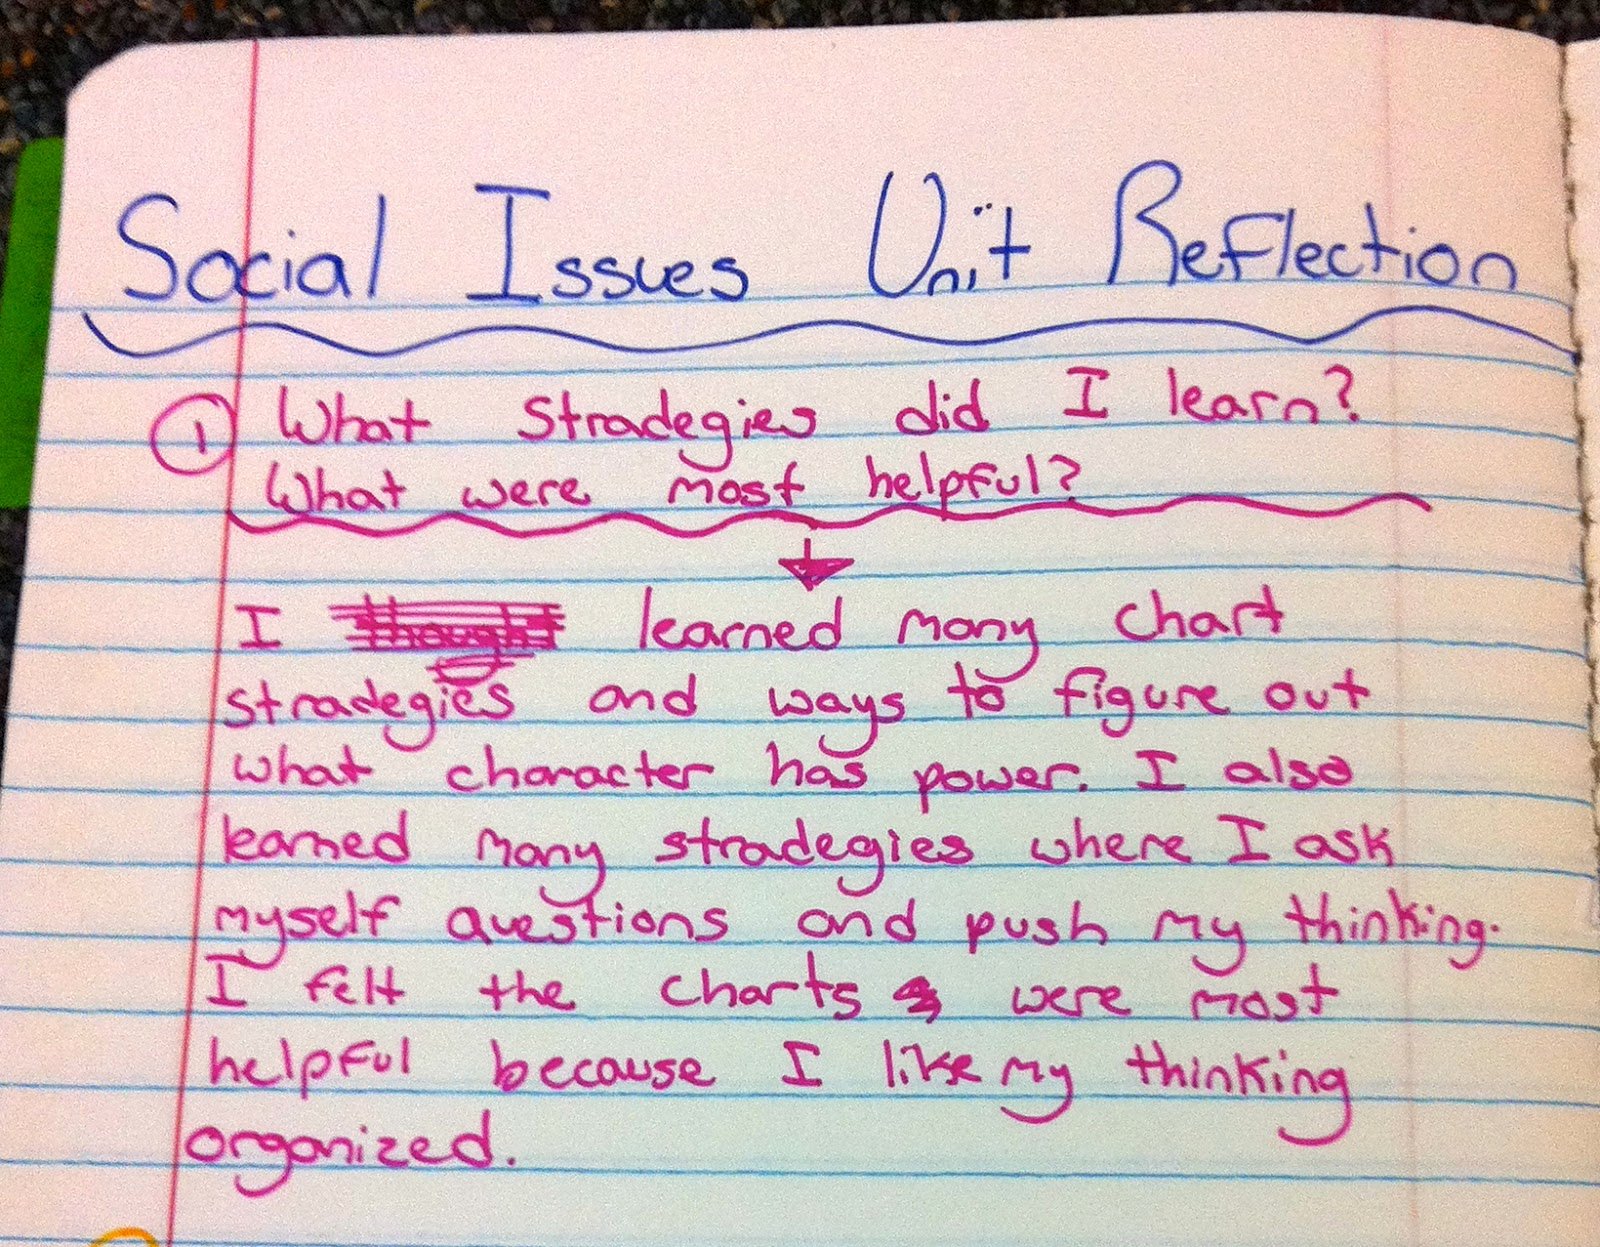 Social Issues Unit Reflection
1 What stradegies did I learn?
What were most helpful?
I learned many chart
stradegies and ways to figure out
what character has power. I also
learned many stradegies where I ask
myself questions and push my thinking.
I felt the charts were most
helpful because I like my thinking
organized.